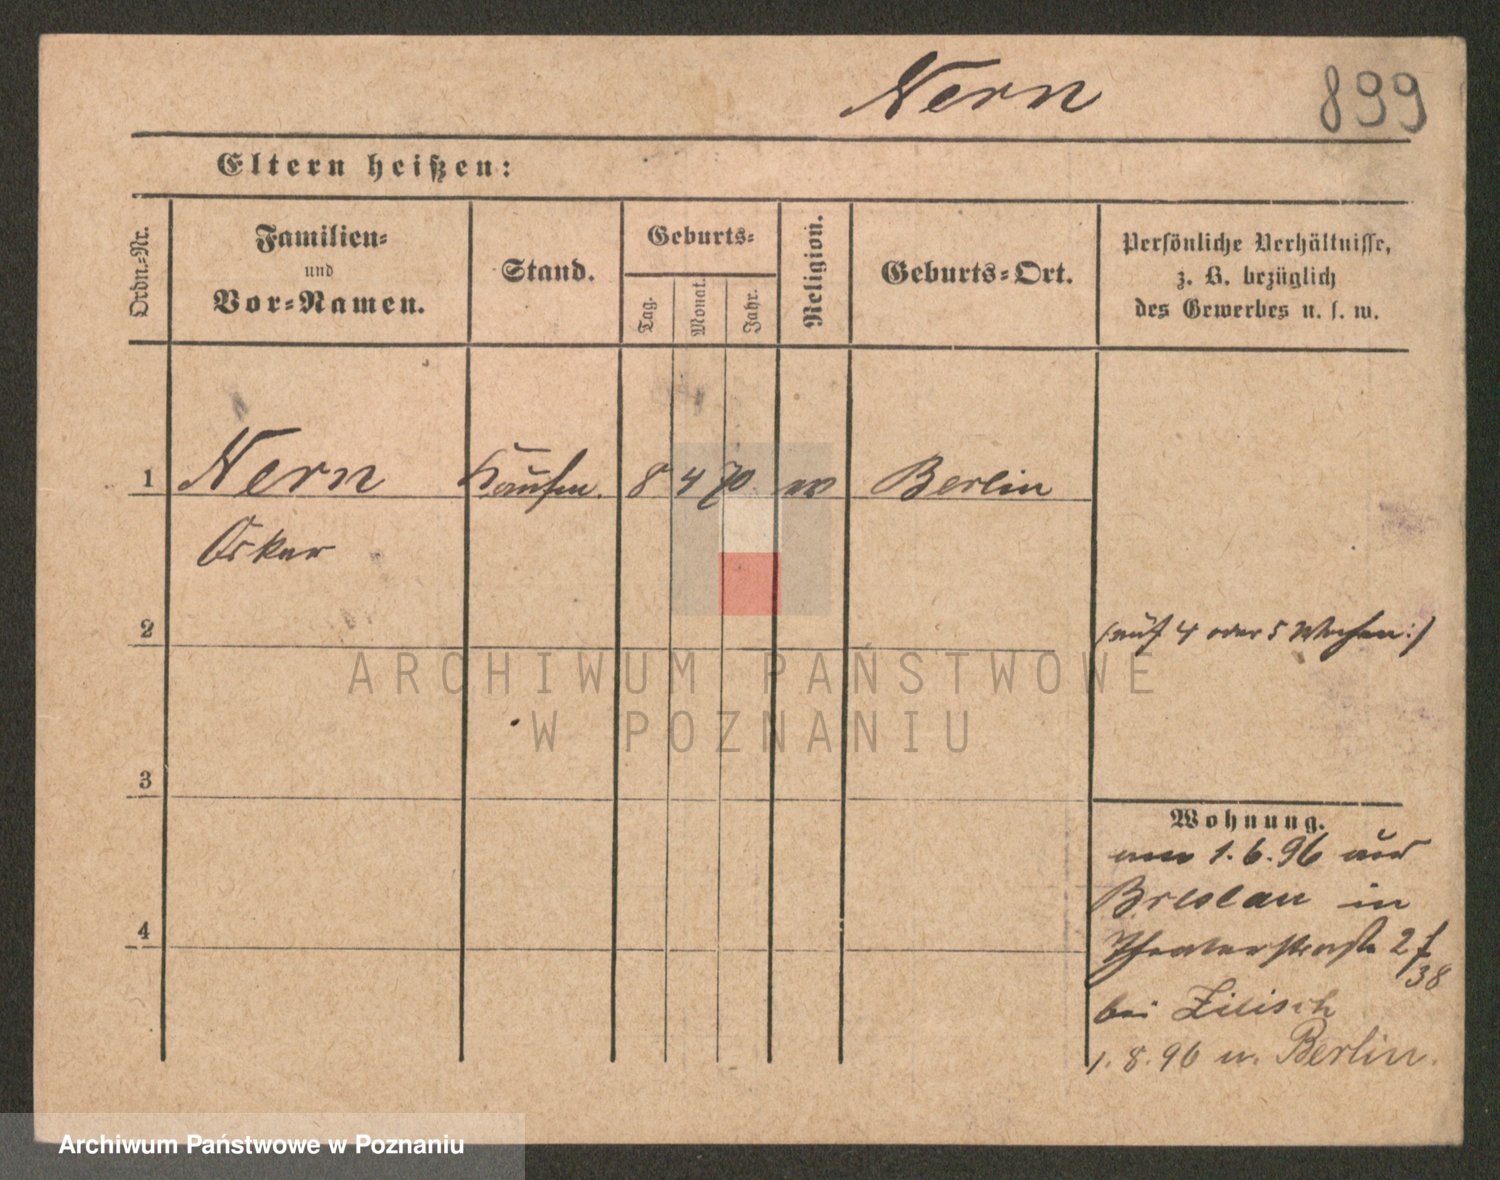 Nern
899
Eltern heißen:
Ordn.-Nr.
Familien-
und
Vor-Namen.
Stand.
Geburts-
Tag.
Monat.
Jahr.
Religion.
Geburts-Ort.
Persönliche Verhältnisse,
z. B. bezüglich
des Gewerbes u. s. w.
1 Nern Kaufm. 8 4 70 Berlin
Oskar
2
(auf 4 oder 5 Wochen:)
ARCHIWUM PAŃSTWOWE
W POZNANIU
3
Wohnung.
1.6.96 aus
Breslau in
Theaterstraße 2
38
4
bei Zilisch
1.8.96 n. Berlin.
Archiwum Państwowe w Poznaniu